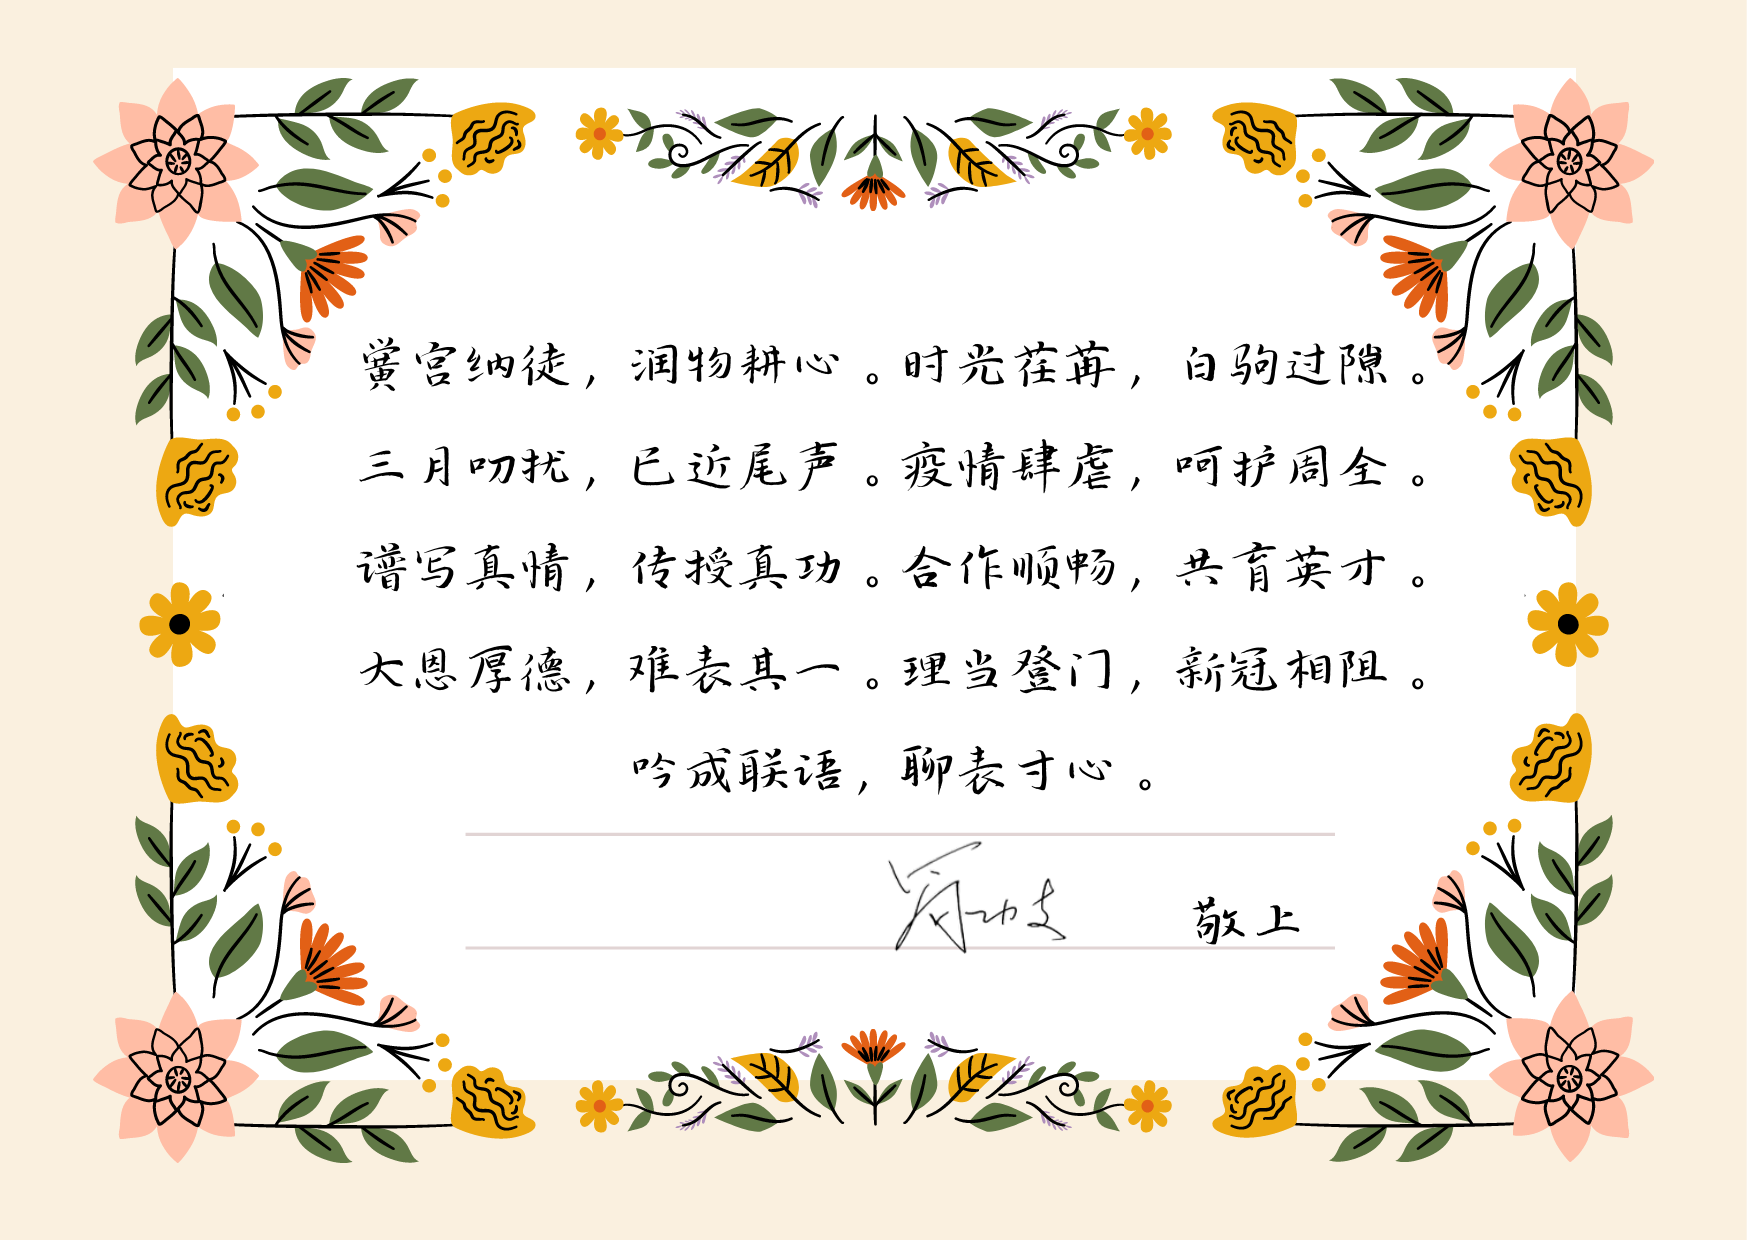 黉宫纳徒，润物耕心。时光荏苒，白驹过隙。
三月叨扰，已近尾声。疫情肆虐，呵护周全。
谱写真情，传授真功。合作顺畅，共育英才。
大恩厚德，难表其一。理当登门，新冠相阻。
吟成联语，聊表寸心。
敬上